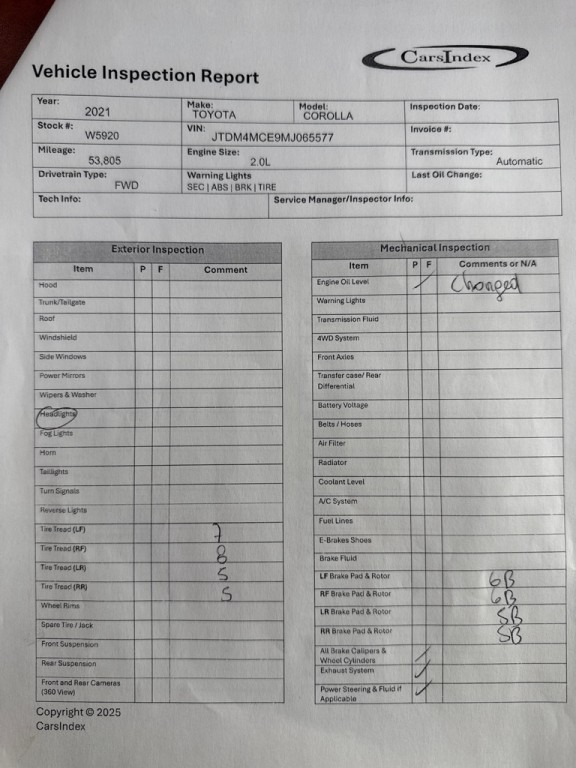 CarsIndex
Vehicle Inspection Report
Year: 2021 Make: TOYOTA Model: COROLLA Inspection Date:
Stock #: W5920 VIN: JTDM4MCE9MJ065577 Invoice #:
Mileage: 53,805 Engine Size: 2.0L Transmission Type: Automatic
Drivetrain Type: FWD Warning Lights SEC | ABS | BRK | TIRE Last Oil Change:
Tech Info: Service Manager/Inspector Info:
Exterior Inspection
Item P F Comment
Hood
Trunk/Tailgate
Roof
Windshield
Side Windows
Power Mirrors
Wipers & Washer
Headlights
Fog Lights
Horn
Taillights
Turn Signals
Reverse Lights
Tire Tread (LF) 7
Tire Tread (RF) 8
Tire Tread (LR) 5
Tire Tread (RR) 5
Wheel Rims
Spare Tire / Jack
Front Suspension
Rear Suspension
Front and Rear Cameras
(360 View)
Mechanical Inspection
Item P F Comments or N/A
Engine Oil Level ✓ Changed
Warning Lights
Transmission Fluid
4WD System
Front Axles
Transfer case/ Rear
Differential
Battery Voltage
Belts / Hoses
Air Filter
Radiator
Coolant Level
A/C System
Fuel Lines
E-Brakes Shoes
Brake Fluid
LF Brake Pad & Rotor 6B
RF Brake Pad & Rotor 6B
LR Brake Pad & Rotor 5B
RR Brake Pad & Rotor 5B
All Brake Calipers & ✓
Wheel Cylinders
Exhaust System ✓
Power Steering & Fluid if ✓
Applicable
Copyright © 2025
CarsIndex